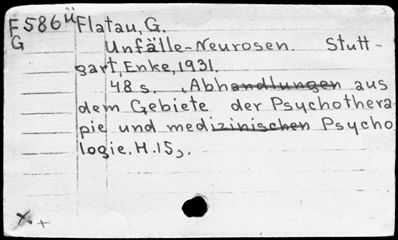 F586ü Flatau, G.
G Unfälle-Neurosen. Stutt-
gart, Enke, 1931.
48 s. (Abhandlungen aus
dem Gebiete der Psychothera
pie und medizinischen Psycho
logie. H.15).
x. +